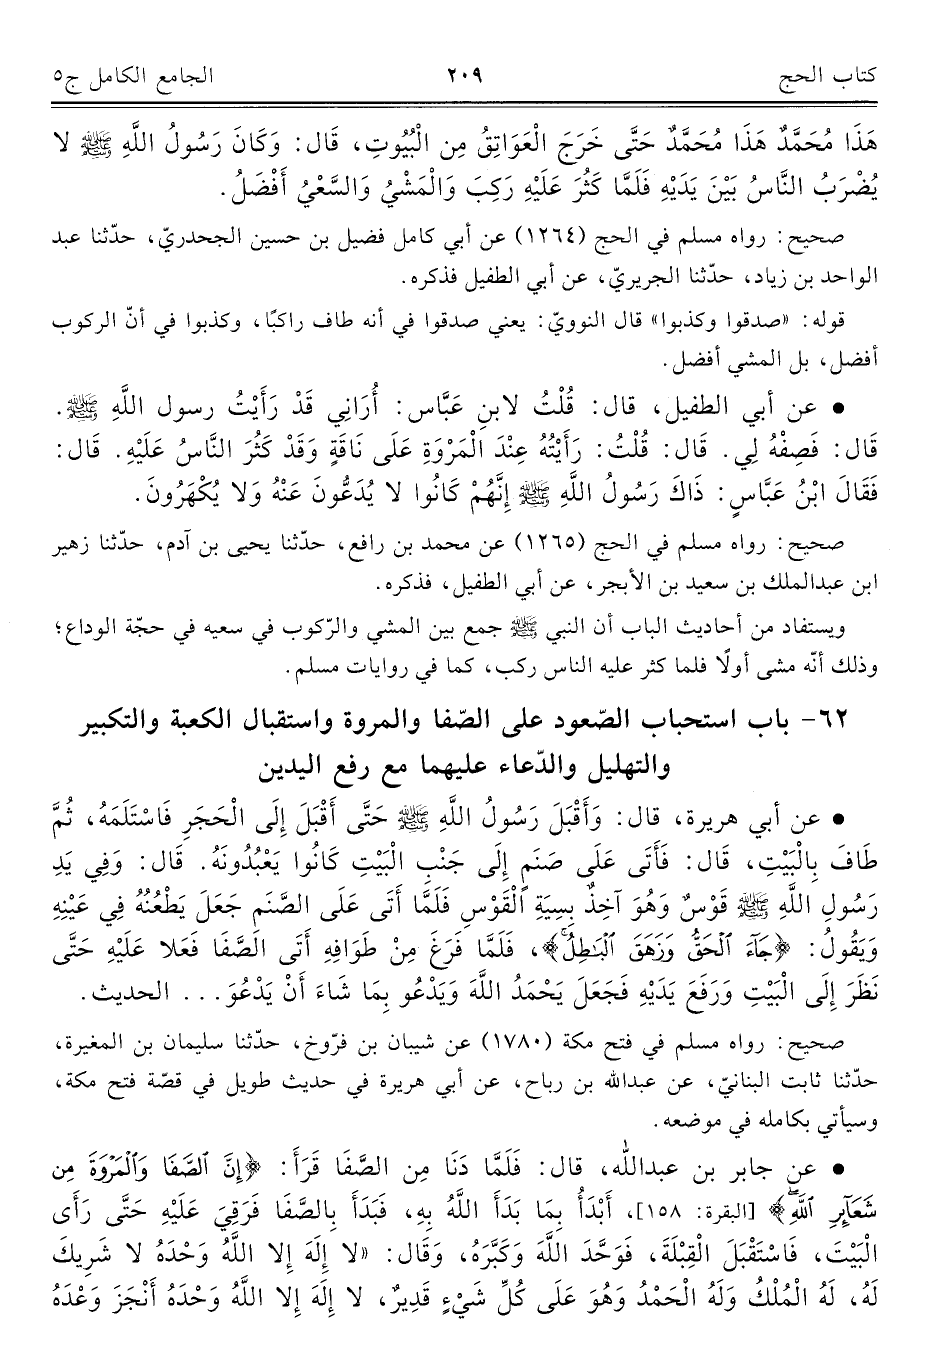 كتاب الحج ٢٠٩ الجامع الكامل ج٥
هَذَا مُحَمَّدٌ هَذَا مُحَمَّدٌ حَتَّى خَرَجَ الْعَوَاتِقُ مِن الْبُيُوتِ، قَال: وَكَانَ رَسُولُ اللَّهِ ﷺ لا
يُضْرَبُ النَّاسُ بَيْنَ يَدَيْهِ فَلَمَّا كَثُرَ عَلَيْهِ رَكِبَ وَالْمَشْيُ وَالسَّعْيُ أَفْضَلُ.
صحيح: رواه مسلم في الحج (١٢٦٤) عن أبي كامل فضيل بن حسين الجحدريّ، حدّثنا عبد
الواحد بن زياد، حدّثنا الجريريّ، عن أبي الطفيل فذكره.
قوله: «صدقوا وكذبوا» قال النوويّ: يعني صدقوا في أنه طاف راكبًا، وكذبوا في أنّ الركوب
أفضل، بل المشي أفضل.
• عن أبي الطفيل، قال: قُلْتُ لابنِ عَبَّاس: أُرَانِي قَدْ رَأَيْتُ رسول اللَّهِ ﷺ.
قَال: فَصِفْهُ لِي. قَال: قُلْتُ: رَأَيْتُهُ عِنْدَ الْمَرْوَةِ عَلَى نَاقَةٍ وَقَدْ كَثُرَ النَّاسُ عَلَيْهِ. قَال:
فَقَالَ ابْنُ عَبَّاسٍ: ذَاكَ رَسُولُ اللَّهِ ﷺ إِنَّهُمْ كَانُوا لا يُدَعُّونَ عَنْهُ وَلا يُكْهَرُونَ.
صحيح: رواه مسلم في الحج (١٢٦٥) عن محمد بن رافع، حدّثنا يحيى بن آدم، حدّثنا زهير
ابن عبدالملك بن سعيد بن الأبجر، عن أبي الطفيل، فذكره.
ويستفاد من أحاديث الباب أن النبي ﷺ جمع بين المشي والرّكوب في سعيه في حجّة الوداع؛
وذلك أنّه مشى أولًا فلما كثر عليه الناس ركب، كما في روايات مسلم.
٦٢- باب استحباب الصّعود على الصّفا والمروة واستقبال الكعبة والتكبير
والتهليل والدّعاء عليهما مع رفع اليدين
• عن أبي هريرة، قال: وَأَقْبَلَ رَسُولُ اللَّهِ ﷺ حَتَّى أَقْبَلَ إِلَى الْحَجَرِ فَاسْتَلَمَهُ، ثُمَّ
طَافَ بِالْبَيْتِ، قَال: فَأَتَى عَلَى صَنَمٍ إِلَى جَنْبِ الْبَيْتِ كَانُوا يَعْبُدُونَهُ. قَال: وَفِي يَدِ
رَسُولِ اللَّهِ ﷺ قَوْسٌ وَهُوَ آخِذٌ بِسِيَةِ الْقَوْسِ فَلَمَّا أَتَى عَلَى الصَّنَمِ جَعَلَ يَطْعُنُهُ فِي عَيْنِهِ
وَيَقُولُ: ﴿جَآءَ ٱلْحَقُّ وَزَهَقَ ٱلْبَـٰطِلُ﴾، فَلَمَّا فَرَغَ مِنْ طَوَافِهِ أَتَى الصَّفَا فَعَلا عَلَيْهِ حَتَّى
نَظَرَ إِلَى الْبَيْتِ وَرَفَعَ يَدَيْهِ فَجَعَلَ يَحْمَدُ اللَّهَ وَيَدْعُو بِمَا شَاءَ أَنْ يَدْعُوَ... الحديث.
صحيح: رواه مسلم في فتح مكة (١٧٨٠) عن شيبان بن فرّوخ، حدّثنا سليمان بن المغيرة،
حدّثنا ثابت البنانيّ، عن عبدالله بن رباح، عن أبي هريرة في حديث طويل في قصّة فتح مكة،
وسيأتي بكامله في موضعه.
• عن جابر بن عبدالله، قال: فَلَمَّا دَنَا مِن الصَّفَا قَرَأَ: ﴿إِنَّ ٱلصَّفَا وَٱلْمَرْوَةَ مِن
شَعَآئِرِ ٱللَّهِ﴾ [البقرة: ١٥٨]، أَبْدَأُ بِمَا بَدَأَ اللَّهُ بِهِ، فَبَدَأَ بِالصَّفَا فَرَقِيَ عَلَيْهِ حَتَّى رَأَى
الْبَيْتَ، فَاسْتَقْبَلَ الْقِبْلَةَ، فَوَحَّدَ اللَّهَ وَكَبَّرَهُ، وَقَال: «لا إِلَهَ إِلا اللَّهُ وَحْدَهُ لا شَرِيكَ
لَهُ، لَهُ الْمُلْكُ وَلَهُ الْحَمْدُ وَهُوَ عَلَى كُلِّ شَيْءٍ قَدِيرٌ، لا إِلَهَ إِلا اللَّهُ وَحْدَهُ أَنْجَزَ وَعْدَهُ